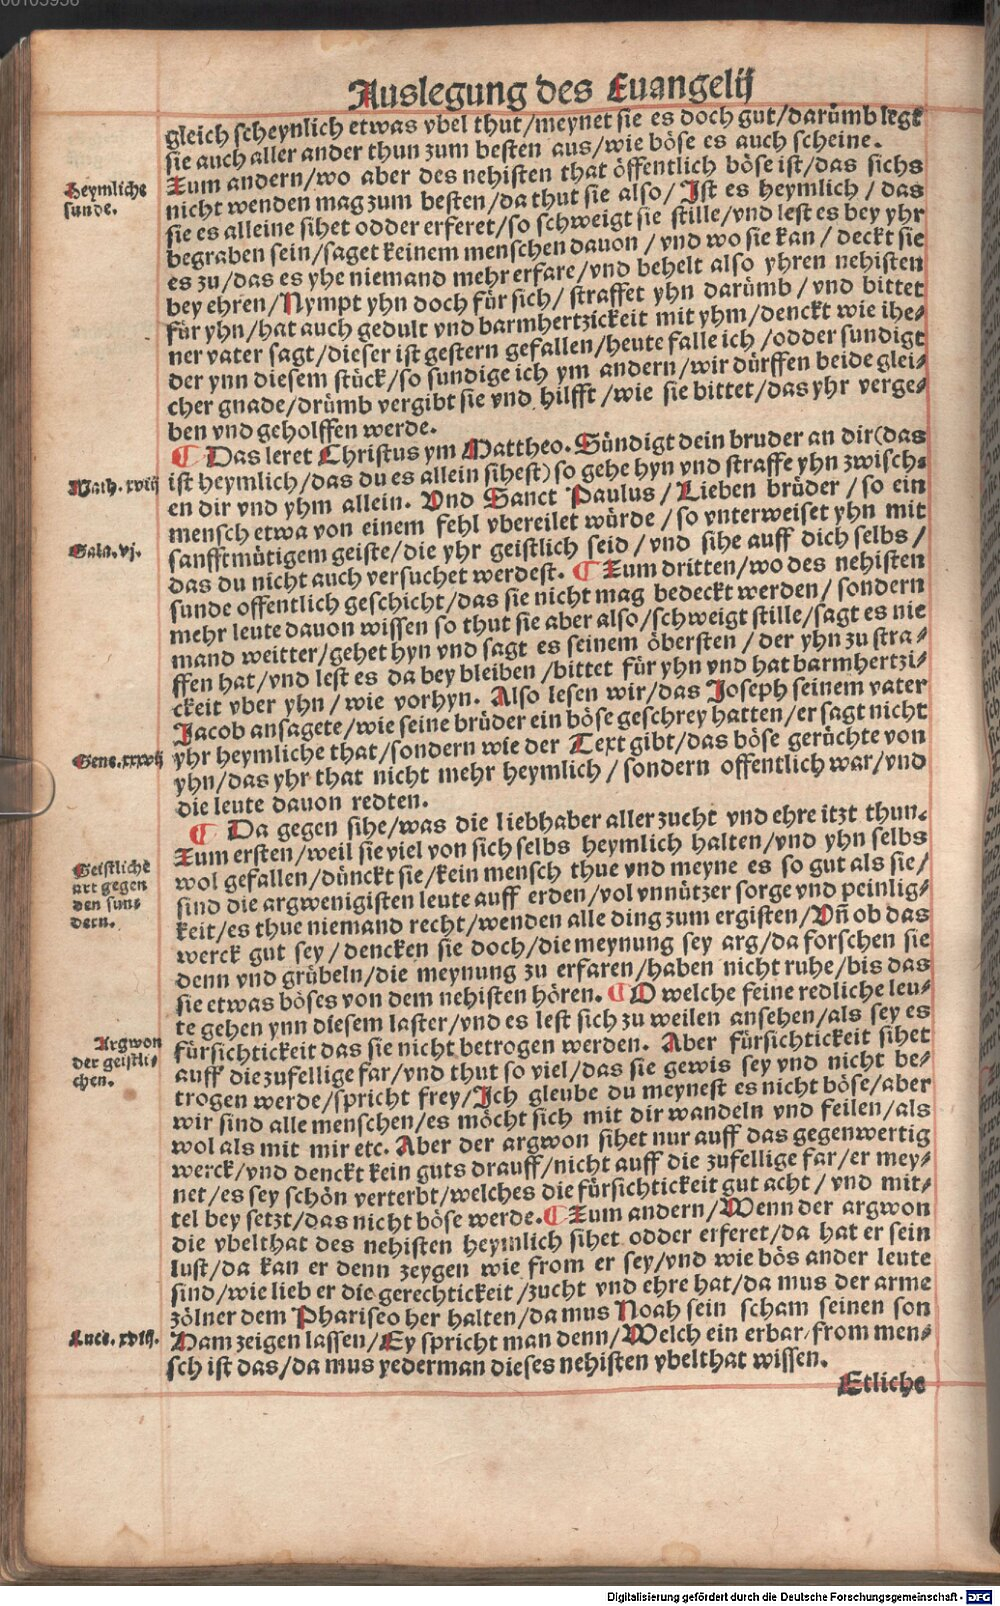 Auslegung des Euangelij
gleich scheynlich etwas vbel thut/meynet sie es doch gut/darümb legt
sie auch aller ander thun zum besten aus/wie böse es auch scheine.
Zum andern/wo aber des nehisten that öffentlich böse ist/das sichs
Heymliche
sunde.
nicht wenden mag zum besten/da thut sie also/Ist es heymlich/das
sie es alleine sihet odder erferet/so schweigt sie stille/vnd lest es bey yhr
begraben sein/saget keinem menschen dauon/vnd wo sie kan/deckt sie
es zu/das es yhe niemand mehr erfare/vnd behelt also yhren nehisten
bey ehren/Nympt yhn doch für sich/straffet yhn darümb/vnd bittet
für yhn/hat auch gedult vnd barmhertzickeit mit yhm/denckt wie ihe-
ner vater sagt/dieser ist gestern gefallen/heute falle ich/odder sundigt
der ynn diesem stück/so sundige ich ym andern/wir dürffen beide glei-
cher gnade/drümb vergibt sie vnd hilfft/wie sie bittet/das yhr verge-
ben vnd geholffen werde.
¶ Das leret Christus ym Mattheo. Sündigt dein bruder an dir(das
Math. xviij
ist heymlich/das du es allein sihest) so gehe hyn vnd straffe yhn zwisch-
en dir vnd yhm allein. Vnd Sanct Paulus/Lieben brüder/so ein
mensch etwa von einem fehl vbereilet würde/so vnterweiset yhn mit
Gala. vj.
sanfftmütigem geiste/die yhr geistlich seid/vnd sihe auff dich selbs/
das du nicht auch versuchet werdest. ¶ Zum dritten/wo des nehisten
sunde offentlich geschicht/das sie nicht mag bedeckt werden/sondern
mehr leute dauon wissen so thut sie aber also/schweigt stille/sagt es nie
mand weitter/gehet hyn vnd sagt es seinem öbersten/der yhn zu stra-
ffen hat/vnd lest es da bey bleiben/bittet für yhn vnd hat barmhertzi-
ckeit vber yhn/wie vorhyn. Also lesen wir/das Joseph seinem vater
Jacob ansagete/wie seine brüder ein böse geschrey hatten/er sagt nicht
Gene. xxxvij
yhr heymliche that/sondern wie der Text gibt/das böse gerüchte von
yhn/das yhr that nicht mehr heymlich/sondern offentlich war/vnd
die leute dauon redten.
¶ Da gegen sihe/was die liebhaber aller zucht vnd ehre itzt thun.
Zum ersten/weil sie viel von sich selbs heymlich halten/vnd yhn selbs
Geistliche
art gegen
den sun-
dern.
wol gefallen/dünckt sie/kein mensch thue vnd meyne es so gut als sie/
sind die argwenigisten leute auff erden/vol vnnützer sorge vnd peinlig-
keit/es thue niemand recht/wenden alle ding zum ergisten/Vñ ob das
werck gut sey/dencken sie doch/die meynung sey arg/da forschen sie
denn vnd grübeln/die meynung zu erfaren/haben nicht ruhe/bis das
sie etwas böses von dem nehisten hören. ¶ O welche feine redliche leu-
te gehen ynn diesem laster/vnd es lest sich zu weilen ansehen/als sey es
Argwon
der geistli-
chen.
fürsichtickeit das sie nicht betrogen werden. Aber fürsichtickeit sihet
auff die zufellige far/vnd thut so viel/das sie gewis sey vnd nicht be-
trogen werde/spricht frey/Ich gleube du meynest es nicht böse/aber
wir sind alle menschen/es möcht sich mit dir wandeln vnd feilen/als
wol als mit mir etc. Aber der argwon sihet nur auff das gegenwertig
werck/vnd denckt kein guts drauff/nicht auff die zufellige far/er mey-
net/es sey schön verterbt/welches die fürsichtickeit gut acht/vnd mit-
tel bey setzt/das nicht böse werde. ¶ Zum andern/Wenn der argwon
die vbelthat des nehisten heymlich sihet odder erferet/da hat er sein
lust/da kan er denn zeygen wie from er sey/vnd wie bös ander leute
sind/wie lieb er die gerechtickeit/zucht vnd ehre hat/da mus der arme
zölner dem Phariseo her halten/da mus Noah sein scham seinen son
Luce. xviij.
Ham zeigen lassen/Ey spricht man denn/Welch ein erbar from men-
sch ist das/da mus yederman dieses nehisten vbelthat wissen.
Etliche
Digitalisierung gefördert durch die Deutsche Forschungsgemeinschaft - DFG